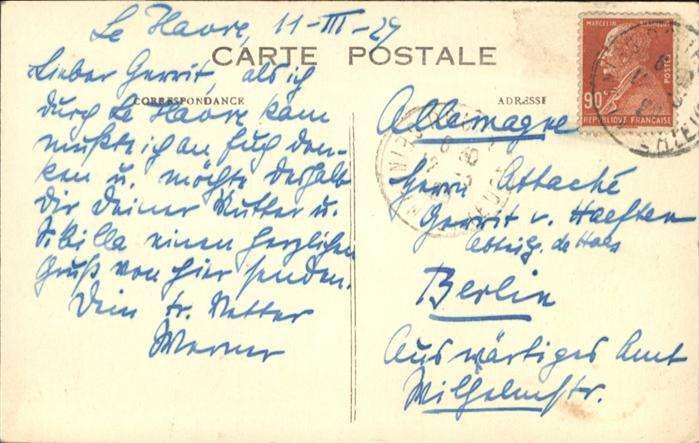 Le Havre, 11-III-29
CARTE POSTALE
CORRESPONDANCE
ADRESSE
Lieber Gerrit, als ich
durch Le Havre kam
mußte ich an Euch den-
ken u. möchte deshalb
Dir Deiner Mutter u.
Sibilla einen herzlichen
Gruß von hier senden.
Dein tr. Vetter
Werner
Allemagne
Herrn Attaché
Gerrit v. Haeften
Berlin
Auswärtiges Amt
Wilhelmstr.
MARCELIN
POSTES
90c
REPUBLIQUE FRANÇAISE